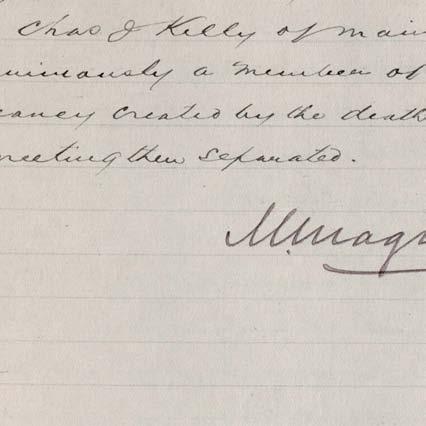 Chas J Kelly of Main
nimously a member of
cancy created by the death
meeting then separated.